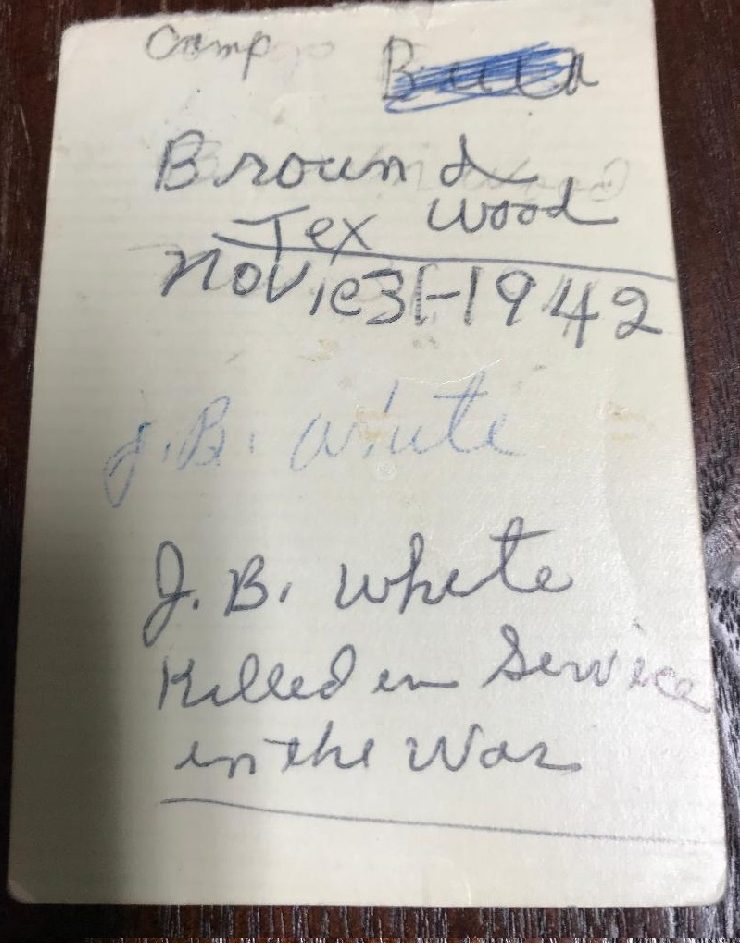 Camp
Brown d
Tex Wood
Nov, 1e31-1942
J. B. White
J. B. White
Killed in Service
in the War